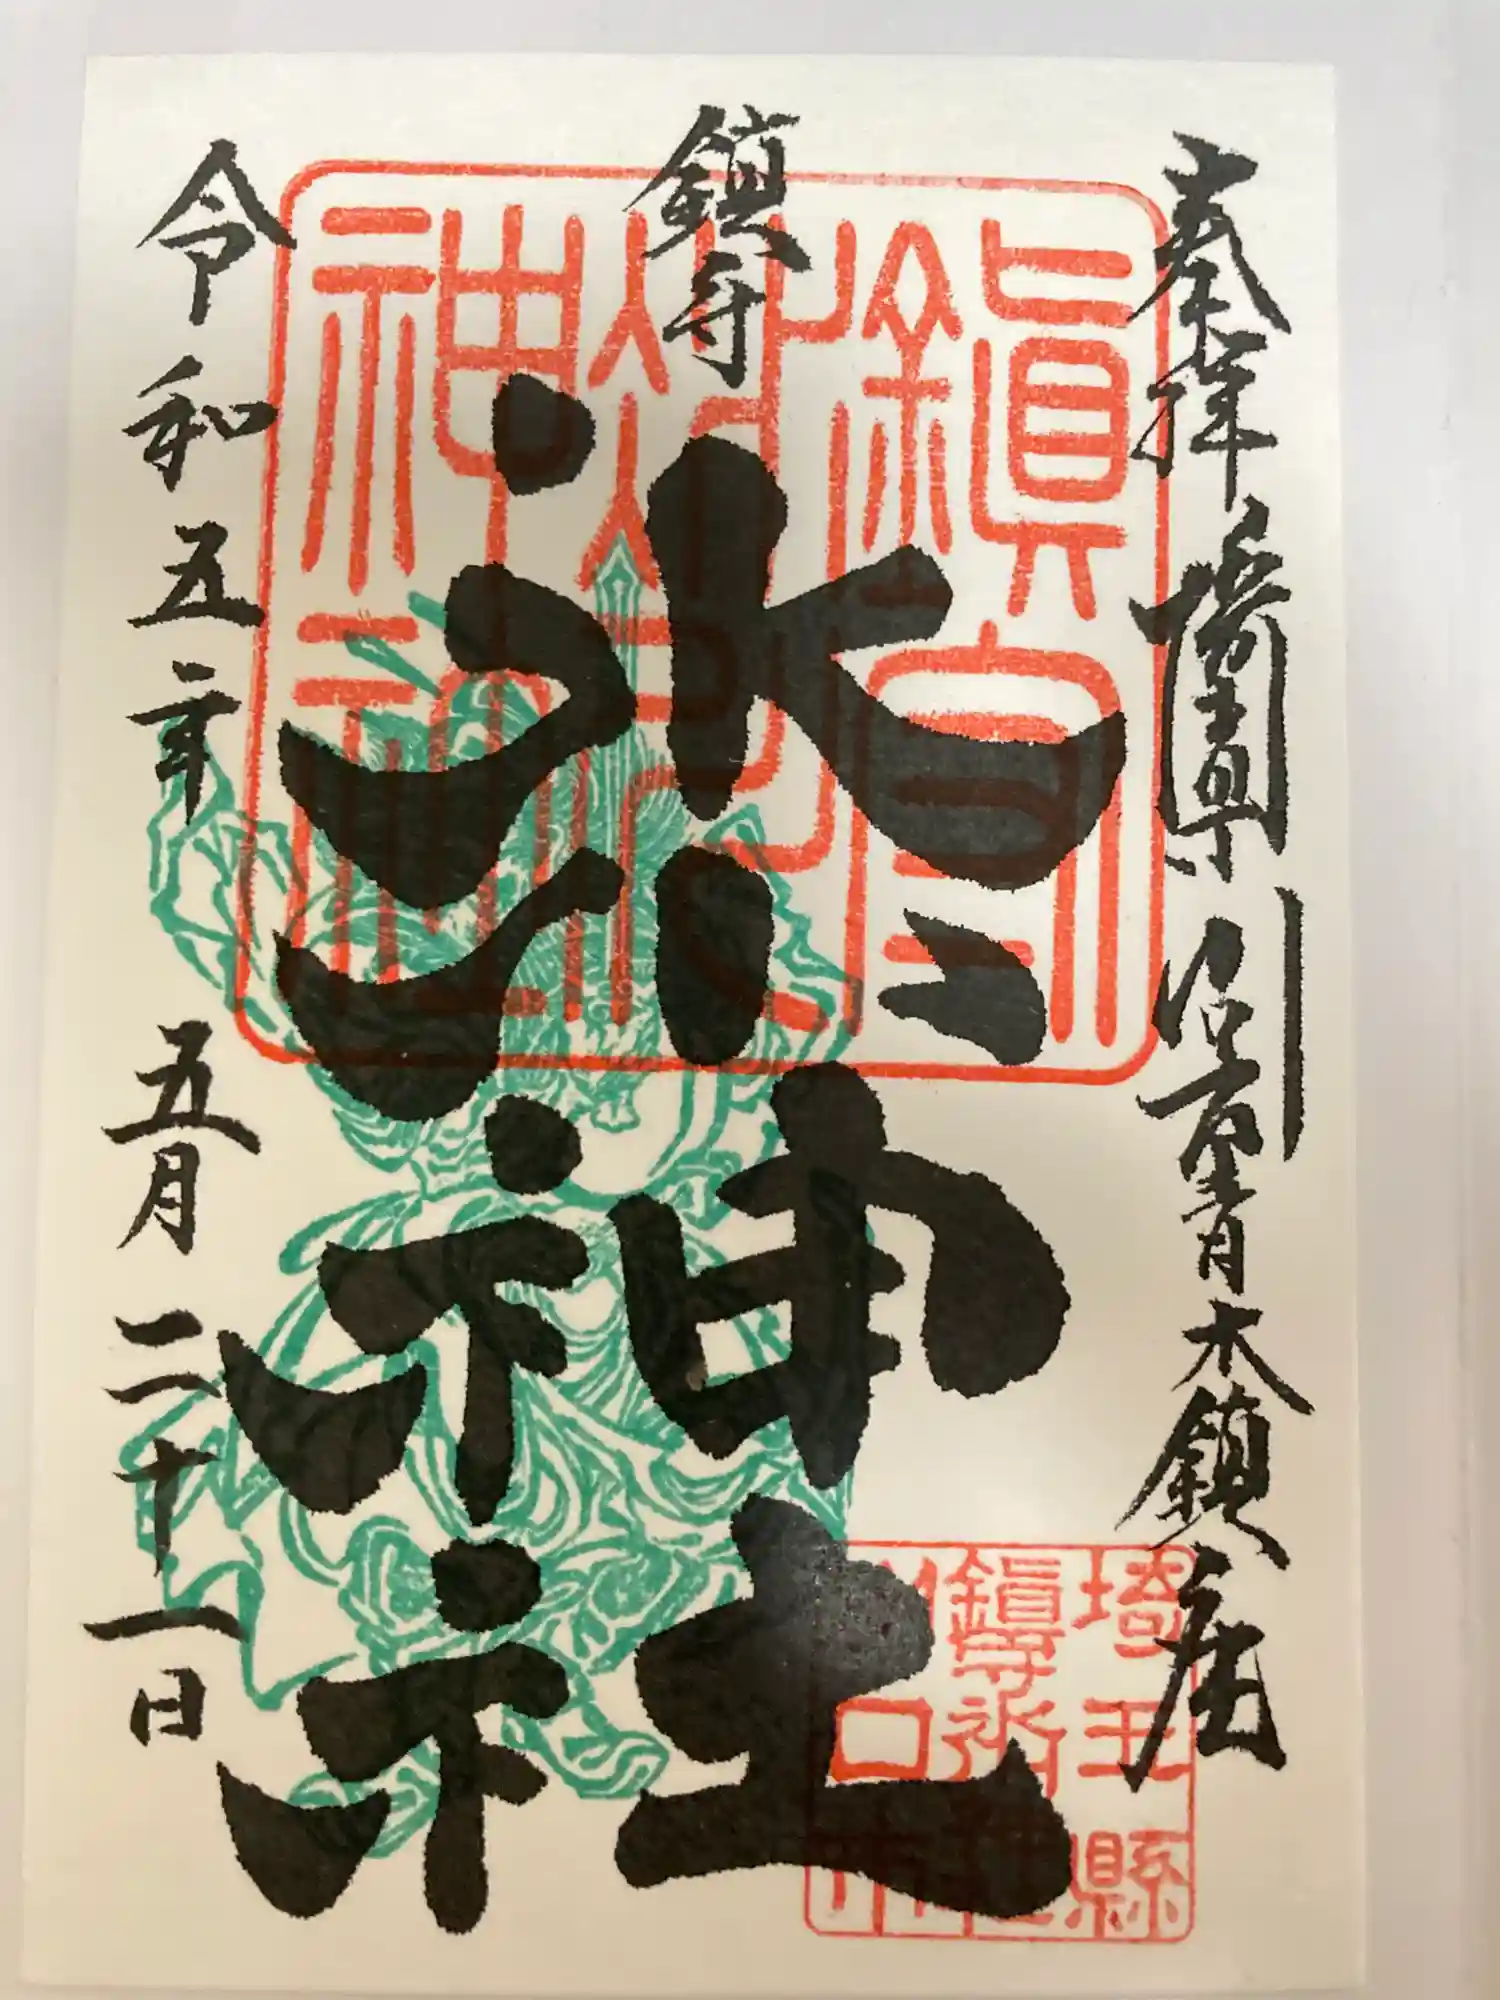 奉拝 埼玉県川口市青木鎮座
鎮守
氷川神社
令和五年 五月二十一日
鎮守
氷川
神社
埼玉縣
川口市
鎮守氷川